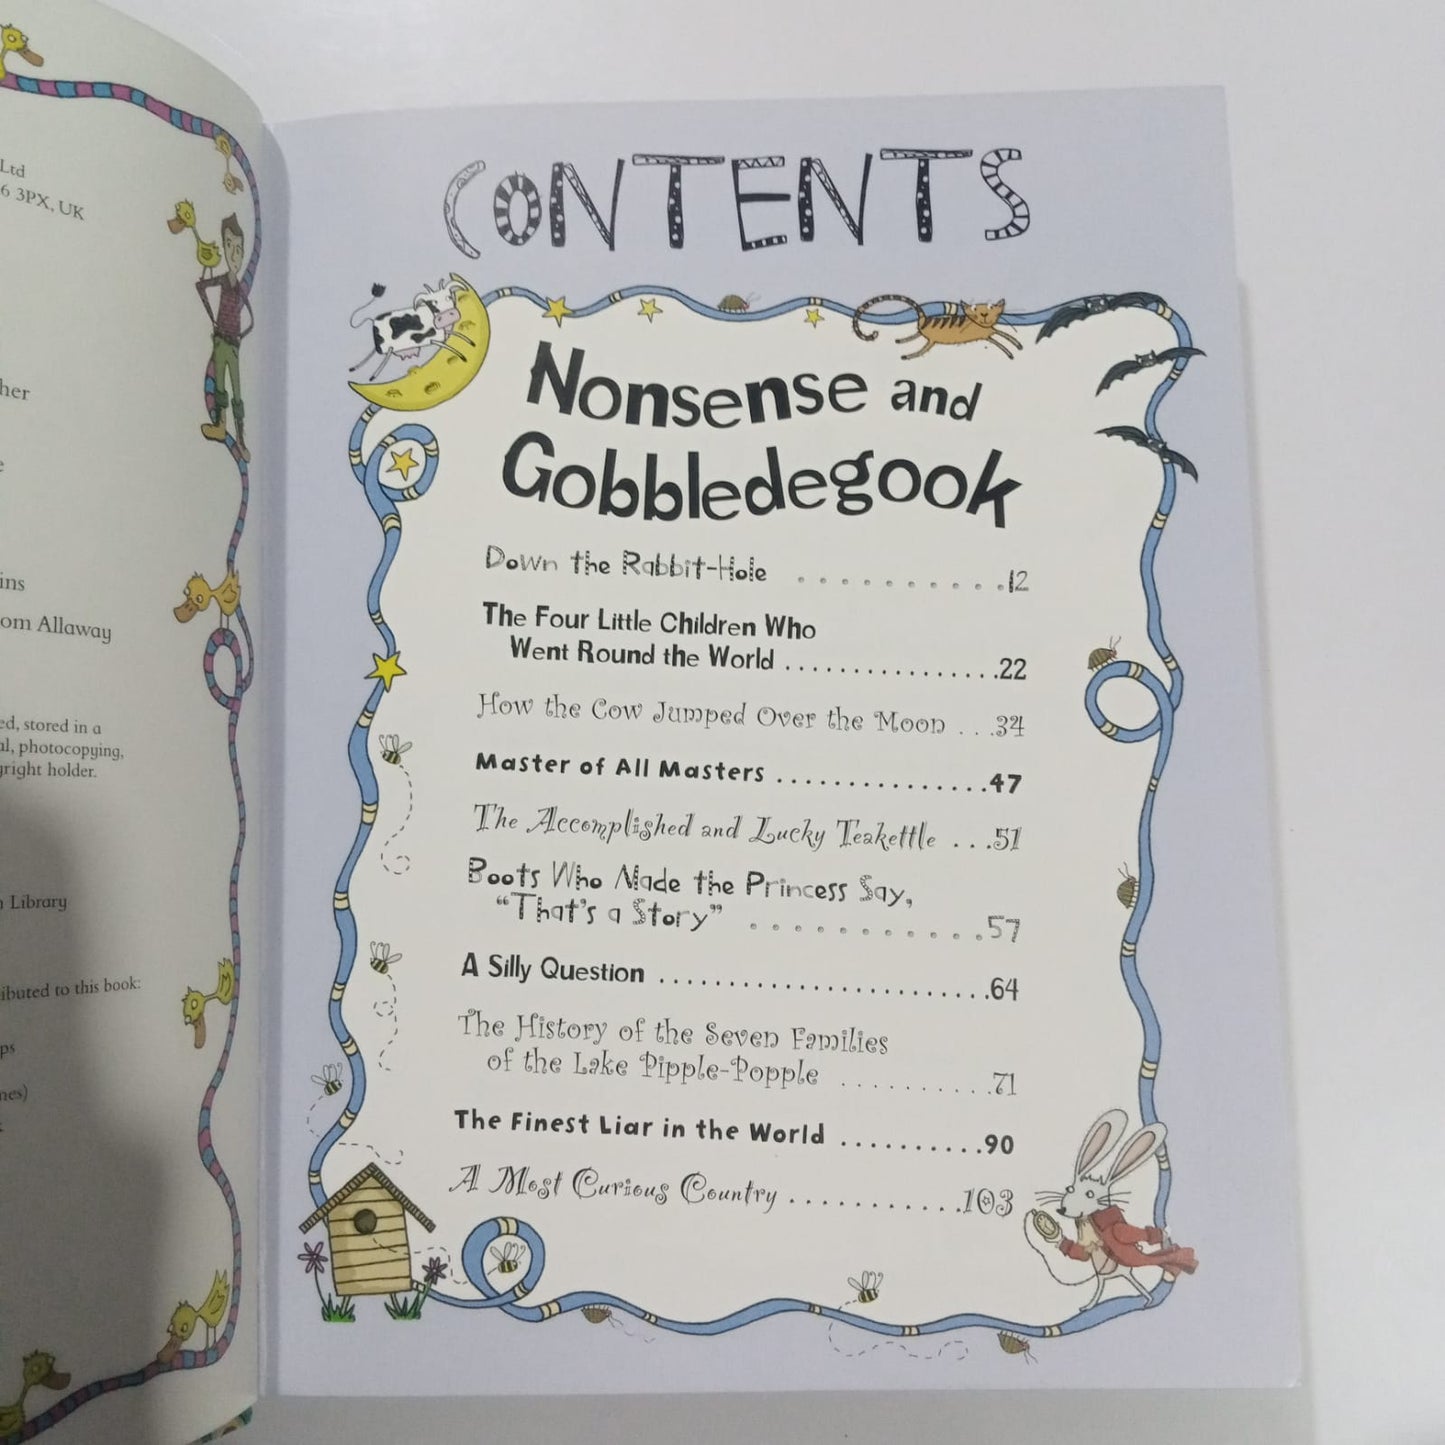 Ltd
6 3PX, UK
her
e
ins
om Allaway
ed, stored in a
al, photocopying,
yright holder.
n Library
ibuted to this book:
ps
nes)
k
CONTENTS
Nonsense and
Gobbledegook
Down the Rabbit-Hole . . . . . . . . . . 12
The Four Little Children Who
Went Round the World . . . . . . . . . . . . . . . . 22
How the Cow Jumped Over the Moon . . . 34
Master of All Masters . . . . . . . . . . . . . . . . 47
The Accomplished and Lucky Teakettle . . . 51
Boots Who Made the Princess Say,
“That’s a Story” . . . . . . . . . . . 57
A Silly Question . . . . . . . . . . . . . . . . . . . . . . . . . 64
The History of the Seven Families
of the Lake Pipple-Popple . . . . . . . . . . 71
The Finest Liar in the World . . . . . . . . . . . 90
A Most Curious Country . . . . . . . . . . . . 103